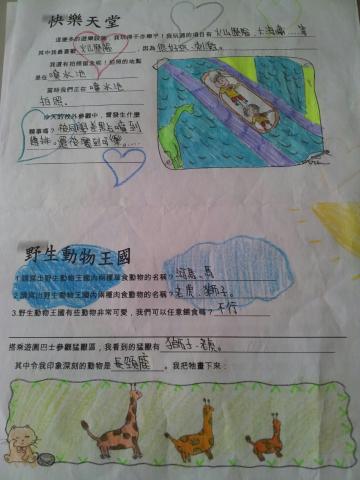 快樂天堂
這麼多的遊樂設施，我玩得不亦樂乎！我玩過的項目有 火山歷險、大海嘯...等
其中我最喜歡 火山歷險 ，因為 很好玩、刺激。
我還有拍照留念呢！拍照的地點
是在 噴水池
當時我們正在 噴水池
拍照。
今天的校外參觀中，曾發生什麼
糗事嗎？
野生動物王國
1.請寫出野生動物王國內兩種草食動物的名稱？河馬、馬
2.請寫出野生動物王國內兩種肉食動物的名稱？老虎、獅子。
3.野生動物王國有些動物非常可愛，我們可以任意餵食嗎？不行
搭乘遊園巴士參觀猛獸區，我看到的猛獸有 獅子、老虎。
其中令我印象深刻的動物是 長頸鹿 。我把牠畫下來：